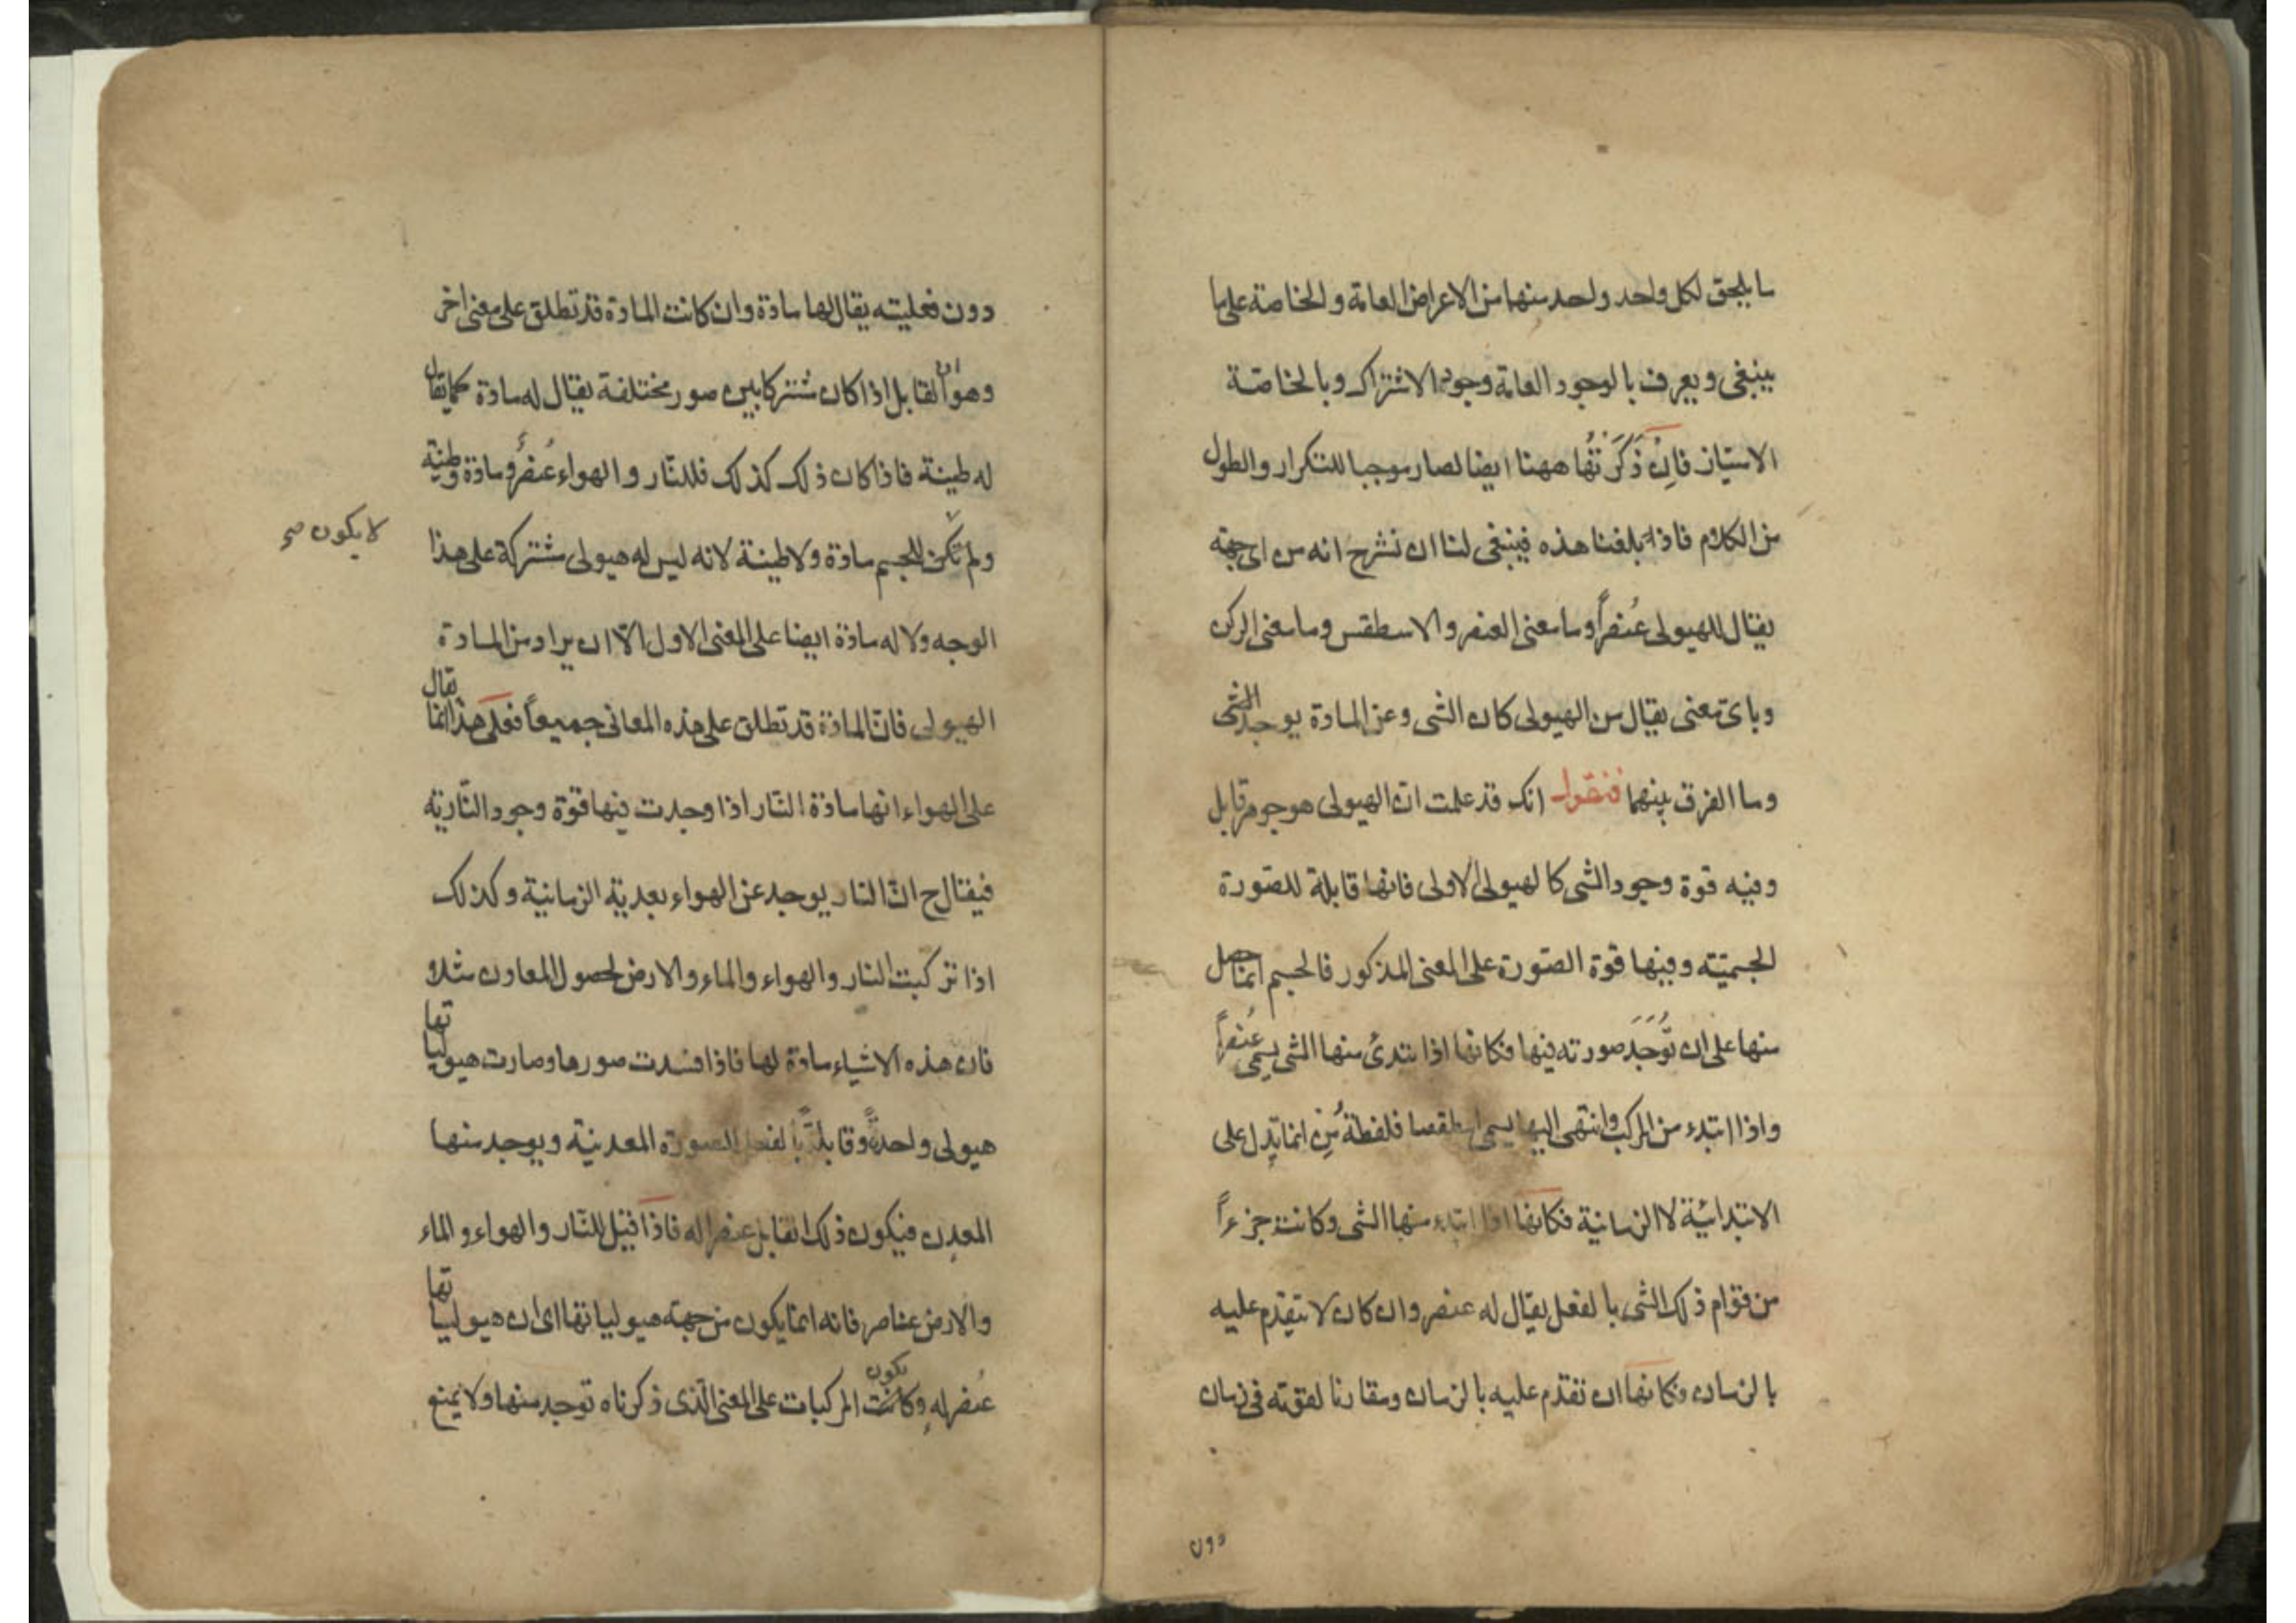 ما يلحق لكل واحد واحد منها من الاعراض العامة والخاصة على ما
ينبغى ويعرف بالوجود العامة وجود الاشتراك وبالخاصة
الامتياز فان ذَكَرتُها ههنا ايضا لصار موجبا للتكرار والطول
من الكلام فاذا بلغنا هذه فينبغى لنا ان نشرح انه من اى جهة
يقال للهيولى عُنصراً وما معنى العنصر والاسطقس وما معنى الركن
وباى معنى يقال من الهيولى كان الشى وعن المادة يوجد الشى
وما الفرق بينهما فنقول انك قد علمت انّ الهيولى هو جوهر قابل
وفيه قوة وجود الشى كالهيولى الاولى فانها قابلة للصّورة
الجسميّته وفيها قوة الصّورة على المعنى المذكور فالجسم انما حصل
منها على ان تُوجَد صورته فيها فكانها اذا ابتدئ منها الشى يسمى عُنصراً
واذا ابتدء من المركب وانتهى اليها يسمى اسطقصا فلفظة مِن انما تدل على
الابتدائيّة لا الزمانية فكانها اذا ابتدء منها الشى وكانت جزءاً
من قوام ذلك الشى بالفعل يقال له عنصر وان كان لا يتقدم عليه
بالزمان وكانها ان تقدم عليه بالزمان ومقارنا لقوته فى زمان
دون
دون فعليته يقال لها مادة وان كانت المادة قد تطلق على معنى اخر
وهو ان القابل اذا كان مُشتركا بين صور مختلفة يقال له مادة كما يقال
له طينة فاذا كان ذلك كذلك فللنّار والهواء عُنصرُ ومادة وطينة
ولم تكن للجسم مادة ولا طينة لانه ليس له هيولى مشتركة على هذا
لا يكون صح
الوجه ولا له مادة ايضا على المعنى الاول الّا ان يراد من المادة
الهيولى فانّ المادّة قد تطلق على هذه المعانى جميعاً فعلى هذا انما يقال
على الهواء انها مادة النار اذا وجدت فيها قوّة وجود النّاريّه
فيقال ح انّ النار يوجد عن الهواء بعديّة الزمانية وكذلك
اذا تركبت النار والهواء والماء والارض لحصول المعادن مثلا
فان هذه الاشياء مادة لها فاذا فسدت صورها وصارت هيولياتها
هيولى واحدةً وقابلةً بالفعل للصورة المعدنية ويوجد منها
المعدن فيكون ذلك القابل عنصرا له فاذا قيل للنّار والهواء والماء
والارض عناصر فانه انما يكون من جهة هيولياتها اى ان هيولياتها
عُنصر له وكانت يكون المركبات على المعنى الّذى ذكرناه توجد منها ولا يمنع